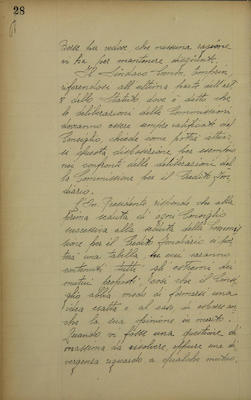 28
Esse ha vedere che nessuna ragione
vi ha per mantenere
Il Sindaco
riferendosi all'ultima parte dell'art.
dello Statuto dove è detto che
le deliberazioni delle Commissioni
dovranno essere sempre ratificate dal
Consiglio, chiede come potrà attuar
si questa disposizione per esempio
nei confronti delle deliberazioni del
la Commissione per il Credito Fon
diario.
Presidente risponde che alla
prima seduta di ogni Consiglio
successiva alla seduta della Commis
sione per il Credito fondiario si por
terà una tabella in cui saranno
contenuti tutti gli estremi dei
mutui proposti, così che il Consi
glio abbia modo di formarsi una
idea esatta e al caso di esprimere an
che la sua opinione in merito.
Quando vi fosse una questione di
massima da risolvere oppure una di
vergenza riguardo a qualche mutuo,